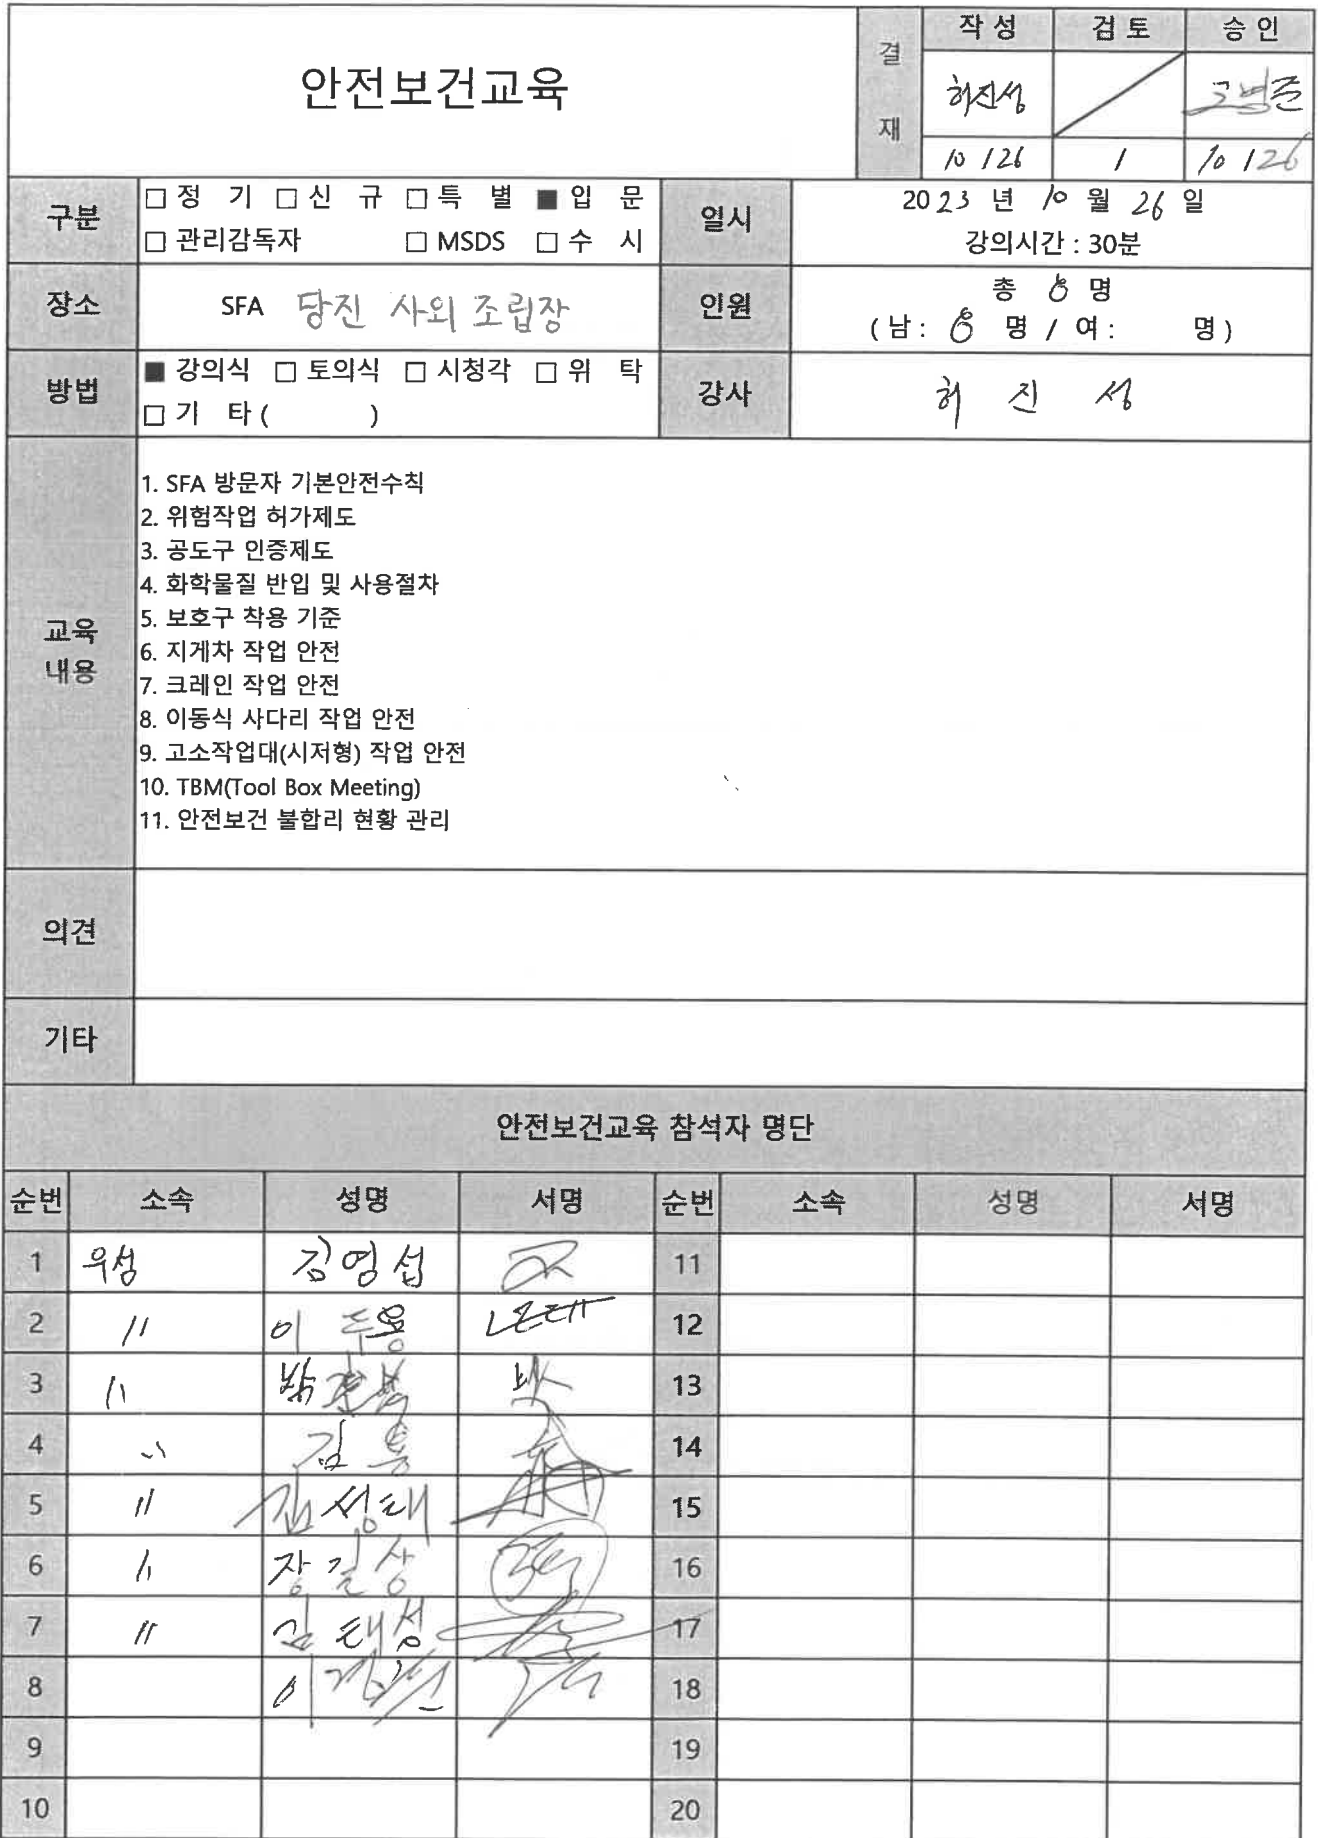 안전보건교육
결재
작성 검토 승인
허진성 고병준
10 / 26 / 10 / 26
구분
□ 정 기 □ 신 규 □ 특 별 ■ 입 문
□ 관리감독자 □ MSDS □ 수 시
일시
2023 년 10 월 26 일
강의시간 : 30분
장소
SFA 당진 사외 조립장
인원
총 8 명
( 남 : 8 명 / 여 : 명 )
방법
■ 강의식 □ 토의식 □ 시청각 □ 위 탁
□ 기 타 ( )
강사
허 진 성
교육
내용
1. SFA 방문자 기본안전수칙
2. 위험작업 허가제도
3. 공도구 인증제도
4. 화학물질 반입 및 사용절차
5. 보호구 착용 기준
6. 지게차 작업 안전
7. 크레인 작업 안전
8. 이동식 사다리 작업 안전
9. 고소작업대(시저형) 작업 안전
10. TBM(Tool Box Meeting)
11. 안전보건 불합리 현황 관리
의견
기타
안전보건교육 참석자 명단
순번 소속 성명 서명 순번 소속 성명 서명
1 우성 김영섭 11
2 〃 이두용 12
3 〃 박 박 13
4 〃 김 14
5 〃 김성태 15
6 〃 장길상 16
7 〃 김태성 17
8 이 18
9 19
10 20